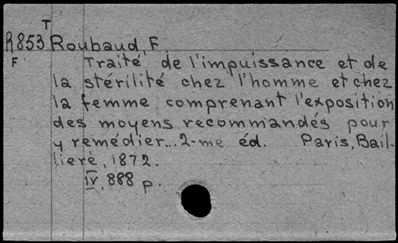 T
R853 Roubaud, F.
F Traité de l'impuissance et de
la stérilité chez l'homme et chez
la femme comprenant l'exposition
des moyens recommandés pour
y remédier... 2-me éd. Paris, Bail-
liere, 1872.
IV, 888 p.